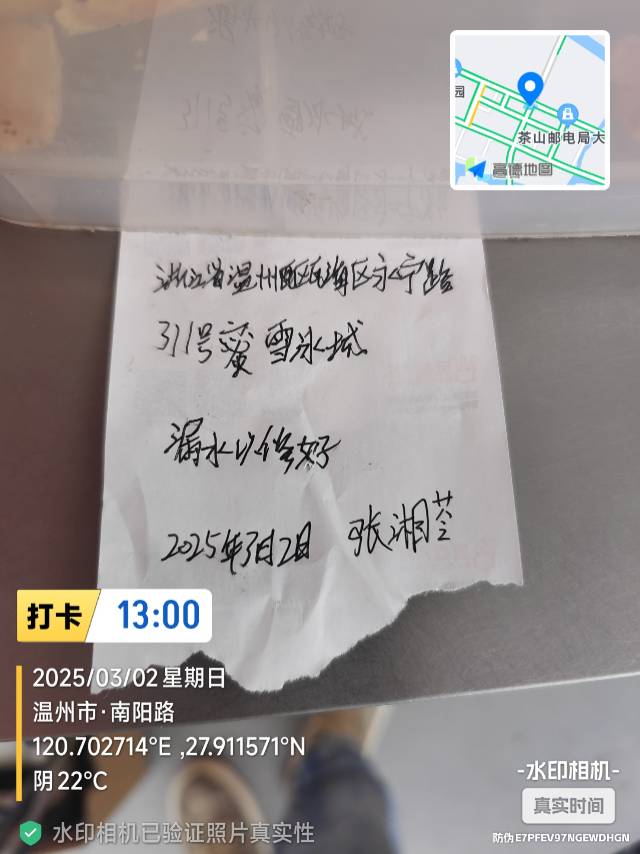 园
茶山邮电局大
高德地图
浙江省温州瓯海区永宁路
311号蜜雪冰城
漏水以修好
2025年3月2日 张湘苓
打卡 13:00
2025/03/02 星期日
温州市·南阳路
120.702714°E ,27.911571°N
阴 22°C
水印相机已验证照片真实性
-水印相机-
真实时间
防伪 E7PFEV97NGEWDHGN